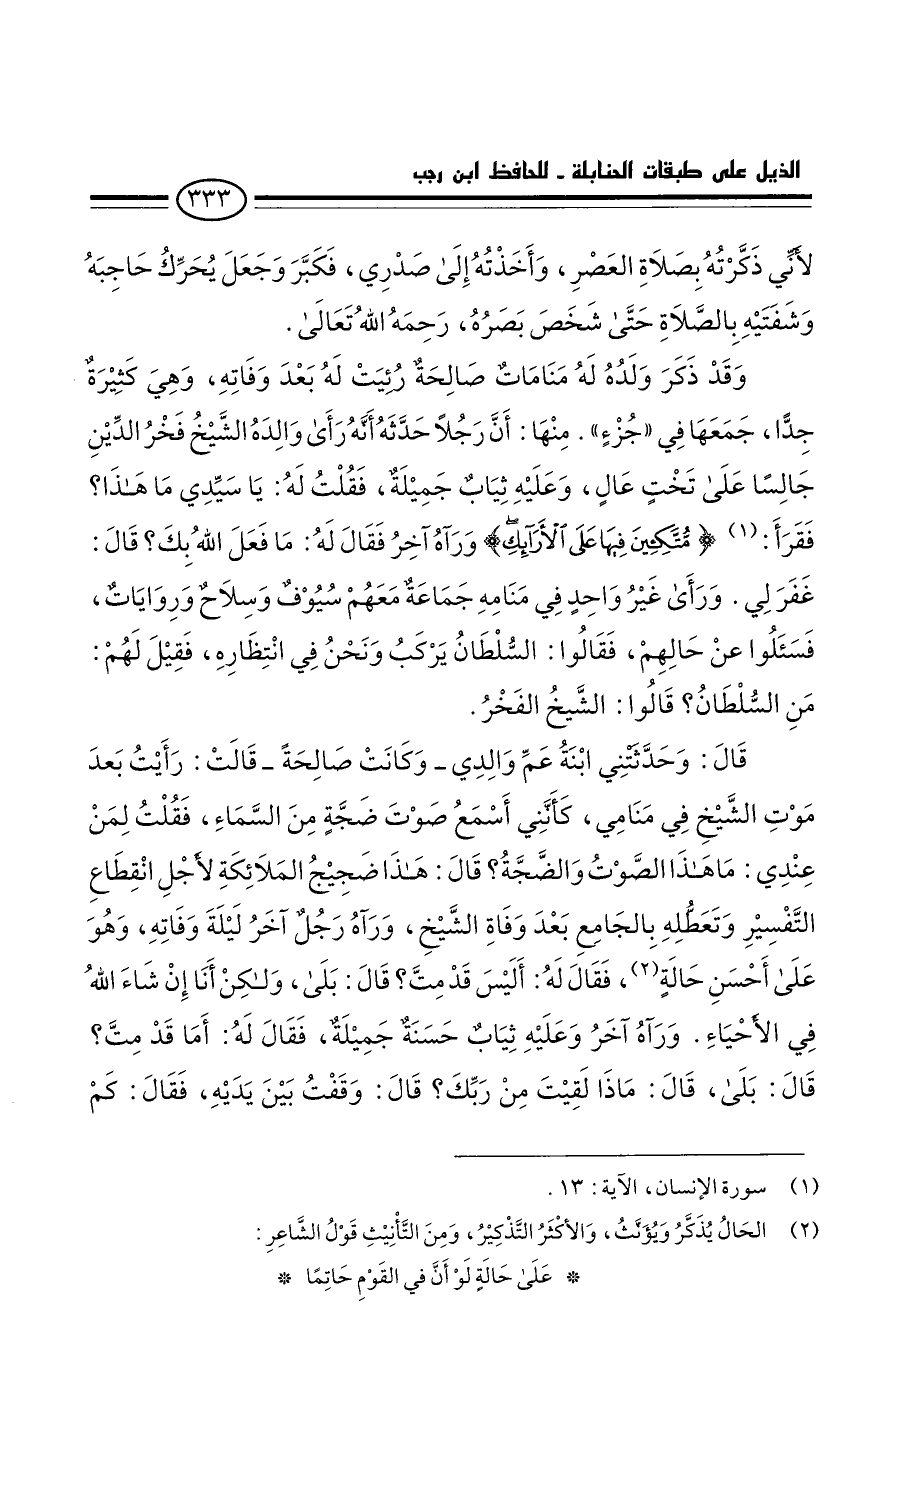 الذيل على طبقات الحنابلة ـ للحافظ ابن رجب
٣٣٣
لأَنِّي ذَكَّرْتُهُ بِصَلَاةِ العَصْرِ، وَأَخَذْتُهُ إِلَىٰ صَدْرِي، فَكَبَّرَ وَجَعَلَ يُحَرِّكُ حَاجِبَهُ
وَشَفَتَيْهِ بِالصَّلَاةِ حَتَّىٰ شَخَصَ بَصَرُهُ، رَحِمَهُ اللهُ تَعَالَىٰ.
وَقَدْ ذَكَرَ وَلَدُهُ لَهُ مَنَامَاتٌ صَالِحَةٌ رُئِيَتْ لَهُ بَعْدَ وَفَاتِهِ، وَهِيَ كَثِيْرَةٌ
جِدًّا، جَمَعَهَا فِي «جُزْءٍ». مِنْهَا: أَنَّ رَجُلاً حَدَّثَهُ أَنَّهُ رَأَىٰ وَالِدَهُ الشَّيْخُ فَخْرُ الدِّيْنِ
جَالِسًا عَلَىٰ تَخْتٍ عَالٍ، وَعَلَيْهِ ثِيَابٌ جَمِيْلَةٌ، فَقُلْتُ لَهُ: يَا سَيِّدِي مَا هَـٰذَا؟
فَقَرَأَ:(١) ﴿ مُتَّكِئِينَ فِيهَا عَلَى ٱلْأَرَآئِكِ ۖ ﴾ وَرَآهُ آخِرُ فَقَالَ لَهُ: مَا فَعَلَ اللهُ بِكَ؟ قَالَ:
غَفَرَ لِي. وَرَأَىٰ غَيْرُ وَاحِدٍ فِي مَنَامِهِ جَمَاعَةٌ مَعَهُمْ سُيُوْفٌ وَسِلَاحٌ وَرِوَايَاتٌ،
فَسَئَلُوا عَنْ حَالِهِمْ، فَقَالُوا: السُّلْطَانُ يَرْكَبُ وَنَحْنُ فِي انْتِظَارِهِ، فَقِيْلَ لَهُمْ:
مَنِ السُّلْطَانُ؟ قَالُوا: الشَّيخُ الفَخْرُ.
قَالَ: وَحَدَّثَتْنِي ابْنَةُ عَمِّ وَالِدِي ـ وَكَانَتْ صَالِحَةً ـ قَالَتْ: رَأَيْتُ بَعدَ
مَوْتِ الشَّيْخِ فِي مَنَامِي، كَأَنَّنِي أَسْمَعُ صَوْتَ ضَجَّةٍ مِنَ السَّمَاءِ، فَقُلْتُ لِمَنْ
عِنْدِي: مَاهَـٰذَا الصَّوْتُ وَالضَّجَّةُ؟ قَالَ: هَـٰذَا ضَجِيْجُ المَلَائِكَةِ لأَجْلِ انْقِطَاعِ
التَّفْسِيْرِ وَتَعَطُّلِهِ بِالجَامِعِ بَعْدَ وَفَاةِ الشَّيْخِ، وَرَآهُ رَجُلٌ آخَرُ لَيْلَةَ وَفَاتِهِ، وَهُوَ
عَلَىٰ أَحْسَنِ حَالَةٍ(٢)، فَقَالَ لَهُ: أَلَيْسَ قَدْ مِتَّ؟ قَالَ: بَلَىٰ، وَلَـٰكِنْ أَنَا إِنْ شَاءَ اللهُ
فِي الأَحْيَاءِ. وَرَآهُ آخَرُ وَعَلَيْهِ ثِيَابٌ حَسَنَةٌ جَمِيْلَةٌ، فَقَالَ لَهُ: أَمَا قَدْ مِتَّ؟
قَالَ: بَلَىٰ، قَالَ: مَاذَا لَقِيْتَ مِنْ رَبِّكَ؟ قَالَ: وَقَفْتُ بَيْنَ يَدَيْهِ، فَقَالَ: كَمْ
(١) سورة الإنسان، الآية: ١٣.
(٢) الحَالُ يُذَكَّرُ وَيُؤَنَّثُ، وَالأكْثَرُ التَّذْكِيْرُ، وَمِنَ التَّأْنِيْثِ قَوْلُ الشَّاعِرِ:
* عَلَىٰ حَالَةٍ لَوْ أَنَّ في القَوْمِ حَاتِمًا *